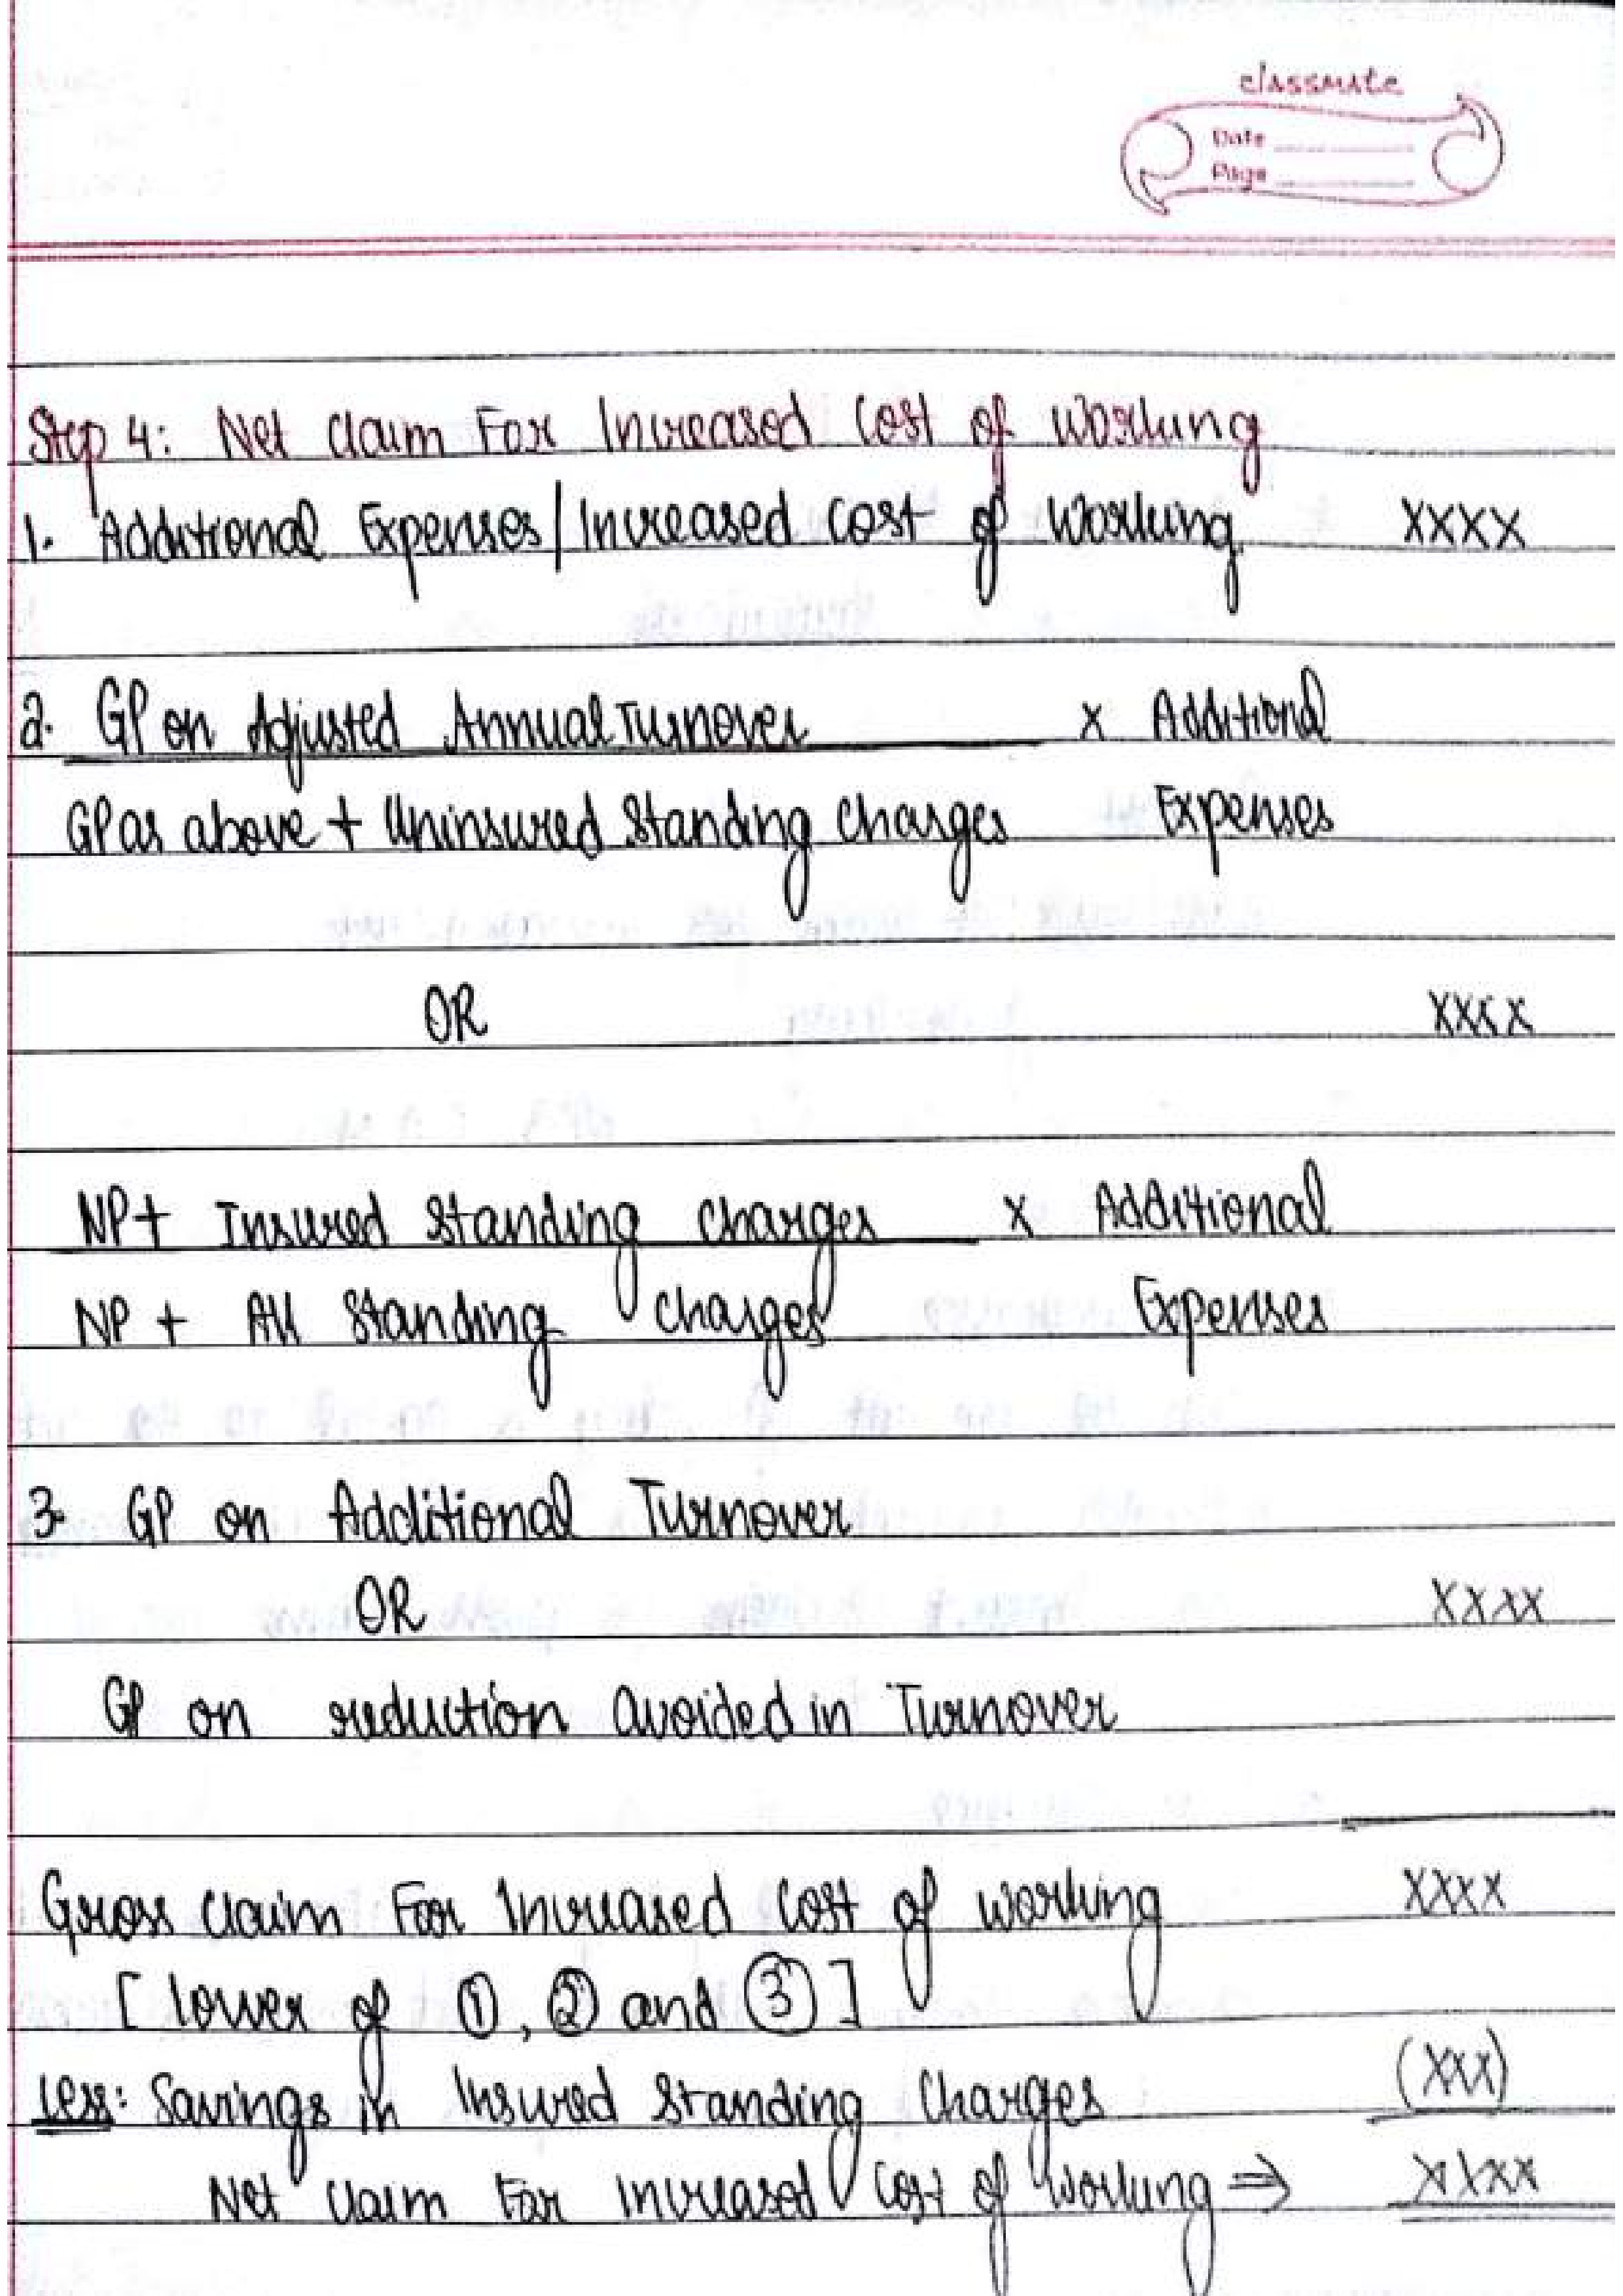 classmate
Date
Page
Step 4: Net Claim For Increased Cost of Working
1. Additional Expenses/Increased Cost of Working XXXX
2. GP on Adjusted Annual Turnover x Additional
GP as above + Uninsured Standing Charges Expenses
OR XXXX
NP+ Insured Standing Charges x Additional
NP + All Standing Charges Expenses
3. GP on Additional Turnover
OR XXXX
GP on reduction avoided in Turnover
Gross Claim For Increased Cost of working XXXX
[lower of ①, ② and ③]
Less: Savings in Insured Standing Charges (XXX)
Net Claim For Increased Cost of Working ⇒ XXXX